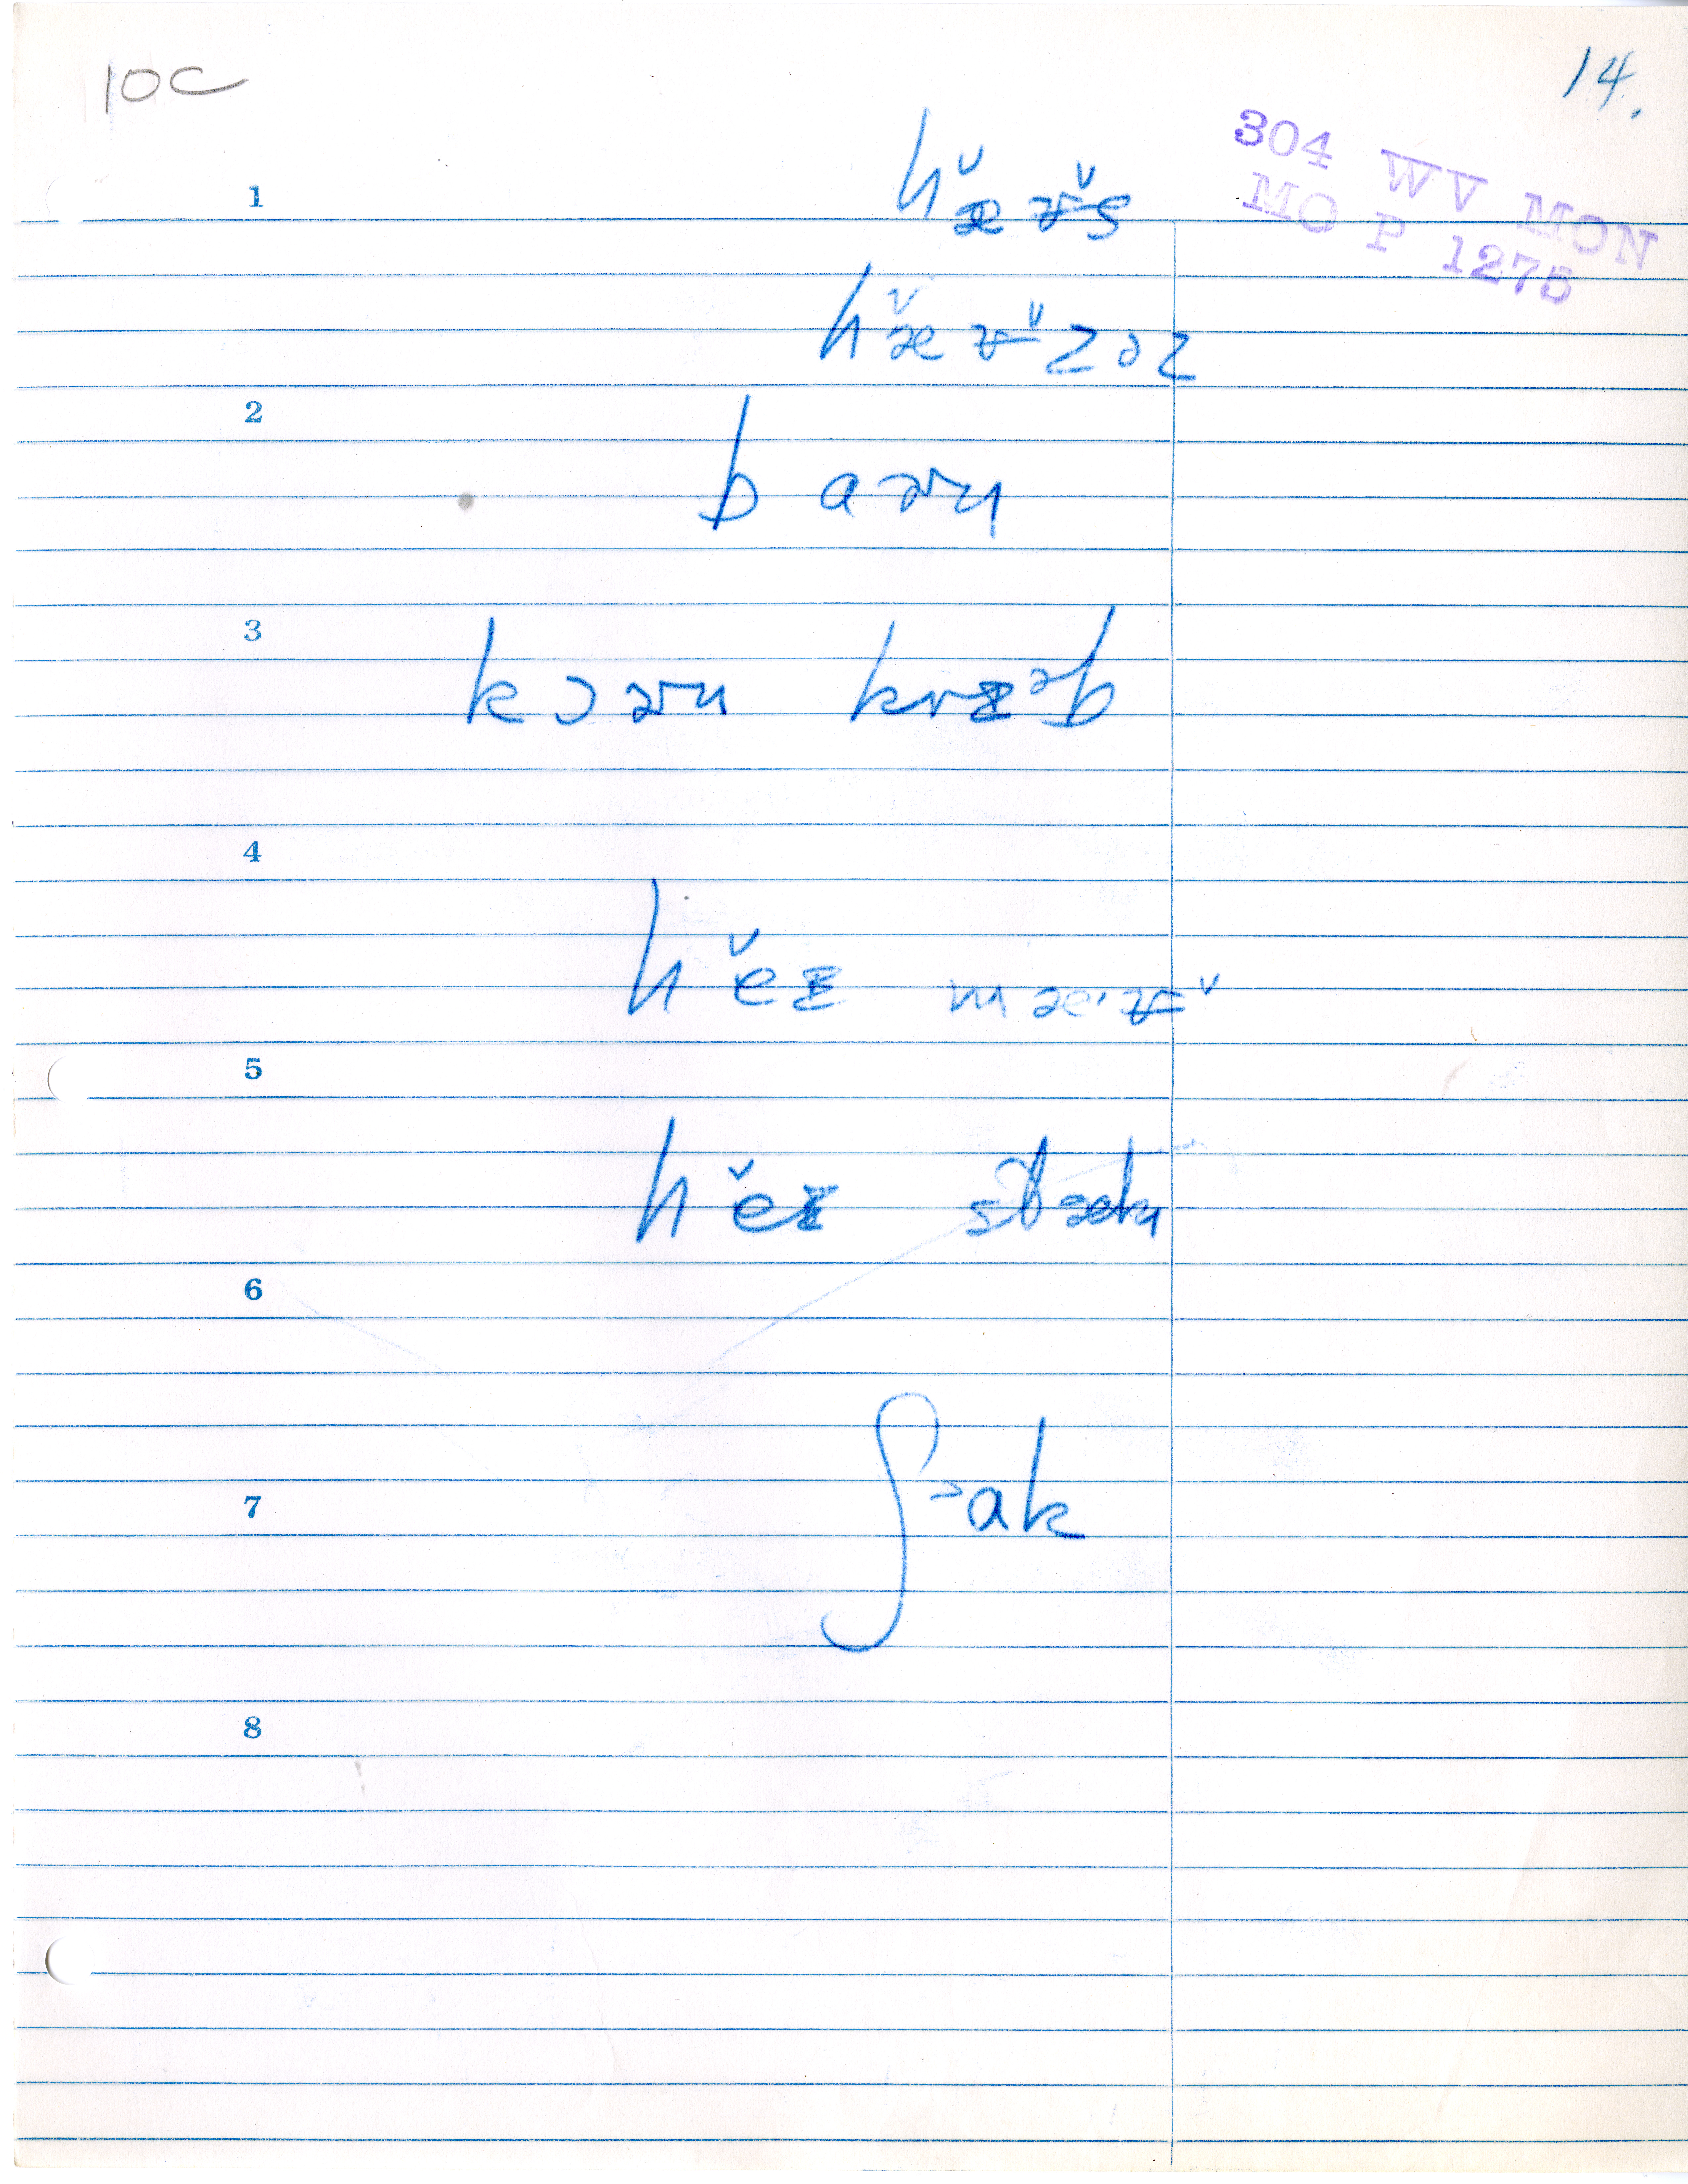 10C
14.
304 WV MON
MO P 1275
1
hæ̆ʉ̆s
hæ̆ʉ̆zəz
2
baɚn
3
kɔɚn krɪᵊb
4
hĕɪ mæ·ʉ̆
5
hĕɪ stæk
6
7
ʃᵊak
8